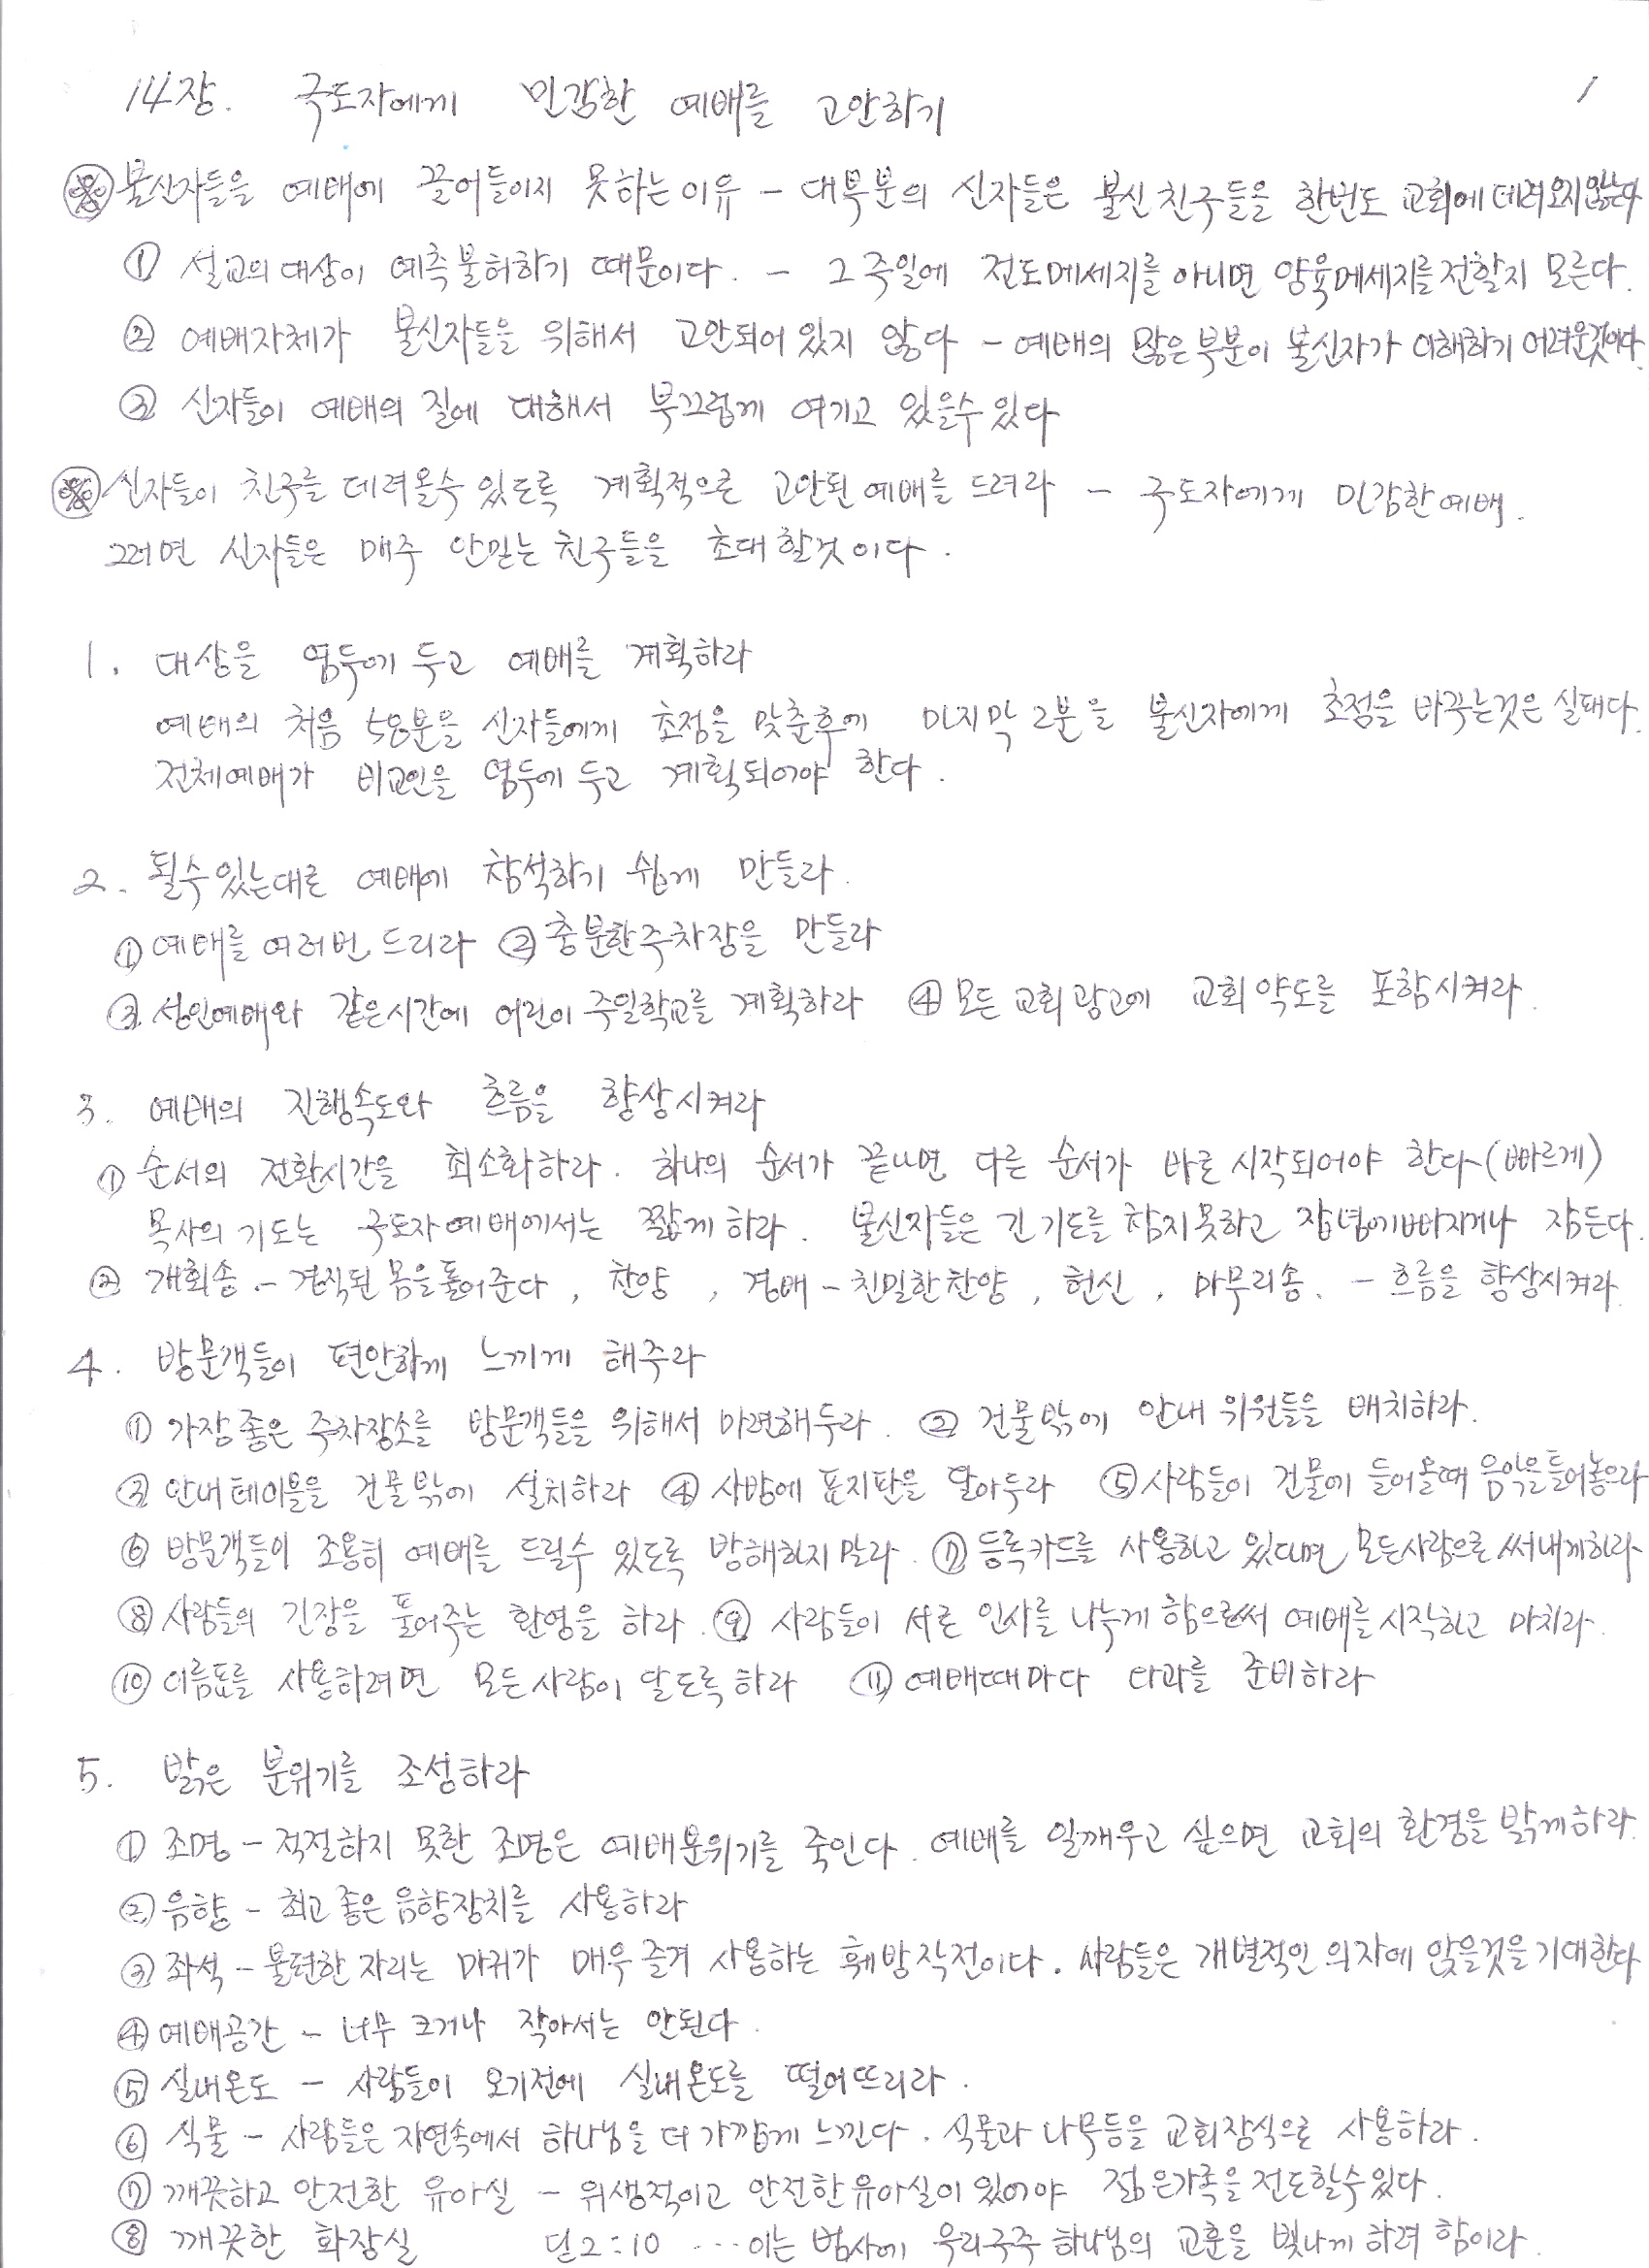 14장. 구도자에게 민감한 예배를 고안하기 1
※ 불신자들을 예배에 끌어들이지 못하는 이유 - 대부분의 신자들은 불신 친구들을 한번도 교회에 데려오지 않는다
① 설교의 대상이 예측불허하기 때문이다. - 그 주일에 전도메세지를 아니면 양육메세지를 전할지 모른다.
② 예배자체가 불신자들을 위해서 고안되어 있지 않다 - 예배의 많은 부분이 불신자가 이해하기 어려운것이다.
③ 신자들이 예배의 질에 대해서 부끄럽게 여기고 있을수 있다
※ 신자들이 친구를 데려올수 있도록 계획적으로 고안된 예배를 드려라 - 구도자에게 민감한 예배.
그러면 신자들은 매주 안믿는 친구들을 초대할것이다.
1. 대상을 염두에 두고 예배를 계획하라
예배의 처음 58분을 신자들에게 초점을 맞춘후에 마지막 2분을 불신자에게 초점을 바꾸는것은 실패다.
전체예배가 비교인을 염두에 두고 계획되어야 한다.
2. 될수있는대로 예배에 참석하기 쉽게 만들라.
① 예배를 여러번 드리라 ② 충분한 주차장을 만들라
③ 성인예배와 같은시간에 어린이 주일학교를 계획하라 ④ 모든 교회 광고에 교회 약도를 포함시켜라.
3. 예배의 진행속도와 흐름을 향상시켜라
① 순서의 전환시간을 최소화하라. 하나의 순서가 끝나면 다른 순서가 바로 시작되어야 한다(빠르게)
목사의 기도는 구도자예배에서는 짧게 하라. 불신자들은 긴 기도를 참지못하고 잡념에빠지거나 잠든다.
② 개회송 - 경직된 몸을 풀어준다, 찬양, 경배 - 친밀한 찬양, 헌신, 마무리송. - 흐름을 향상시켜라.
4. 방문객들이 편안하게 느끼게 해주라
① 가장 좋은 주차장소를 방문객들을 위해서 마련해 두라. ② 건물밖에 안내 위원들을 배치하라.
③ 안내테이블을 건물밖에 설치하라 ④ 사방에 표지판을 달아두라 ⑤ 사람들이 건물에 들어올때 음악을 틀어놓으라
⑥ 방문객들이 조용히 예배를 드릴수 있도록 방해하지 말라. ⑦ 등록카드를 사용하고 있다면 모든사람으로 써내게하라
⑧ 사람들의 긴장을 풀어주는 환영을 하라. ⑨ 사람들이 서로 인사를 나누게 함으로써 예배를 시작하고 마치라.
⑩ 이름표를 사용하려면 모든사람이 달도록 하라 ⑪ 예배때마다 다과를 준비하라
5. 밝은 분위기를 조성하라
① 조명 - 적절하지 못한 조명은 예배분위기를 죽인다. 예배를 일깨우고 싶으면 교회의 환경을 밝게하라.
② 음향 - 최고 좋은 음향장치를 사용하라
③ 좌석 - 불편한 자리는 마귀가 매우 즐겨 사용하는 훼방작전이다. 사람들은 개별적인 의자에 앉을것을 기대한다
④ 예배공간 - 너무 크거나 작아서는 안된다.
⑤ 실내온도 - 사람들이 오기전에 실내온도를 떨어뜨리라.
⑥ 식물 - 사람들은 자연속에서 하나님을 더 가깝게 느낀다. 식물과 나무등을 교회장식으로 사용하라.
⑦ 깨끗하고 안전한 유아실 - 위생적이고 안전한 유아실이 있어야 젊은가족을 전도할수있다.
⑧ 깨끗한 화장실 딛2:10 ...이는 범사에 우리구주 하나님의 교훈을 빛나게 하려 함이라.